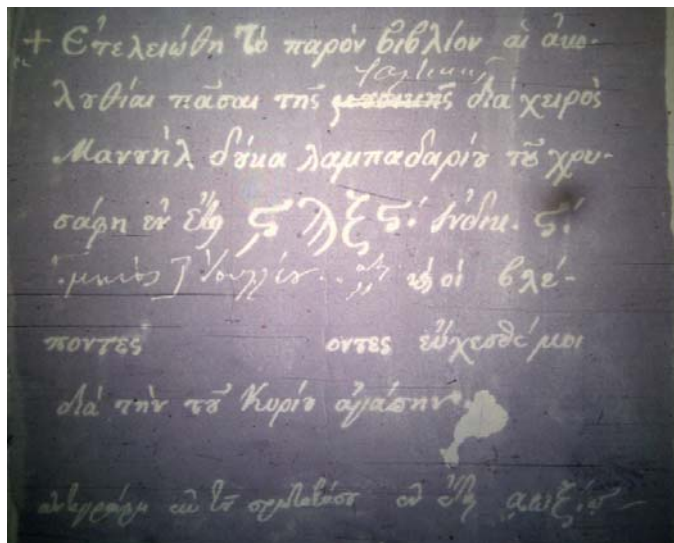 + Ἐτελειώθη τὸ παρὸν βιβλίον αἱ ἀκο-
λουθίαι πᾶσαι τῆς μουσικῆς διὰ χειρὸς
Μανουὴλ δούκα λαμπαδαρίου τοῦ χρυ-
σάφη ἐν ἔτει ϛϡξϛʹ. ἰνδικ. ϛʹ.
μηνὸς Ἰουλλίου οἱ βλέ-
ποντες οντες εὔχεσθέ μοι
διὰ τὴν τοῦ Κυρίου ἀγάπην.
ἐν ἔτει